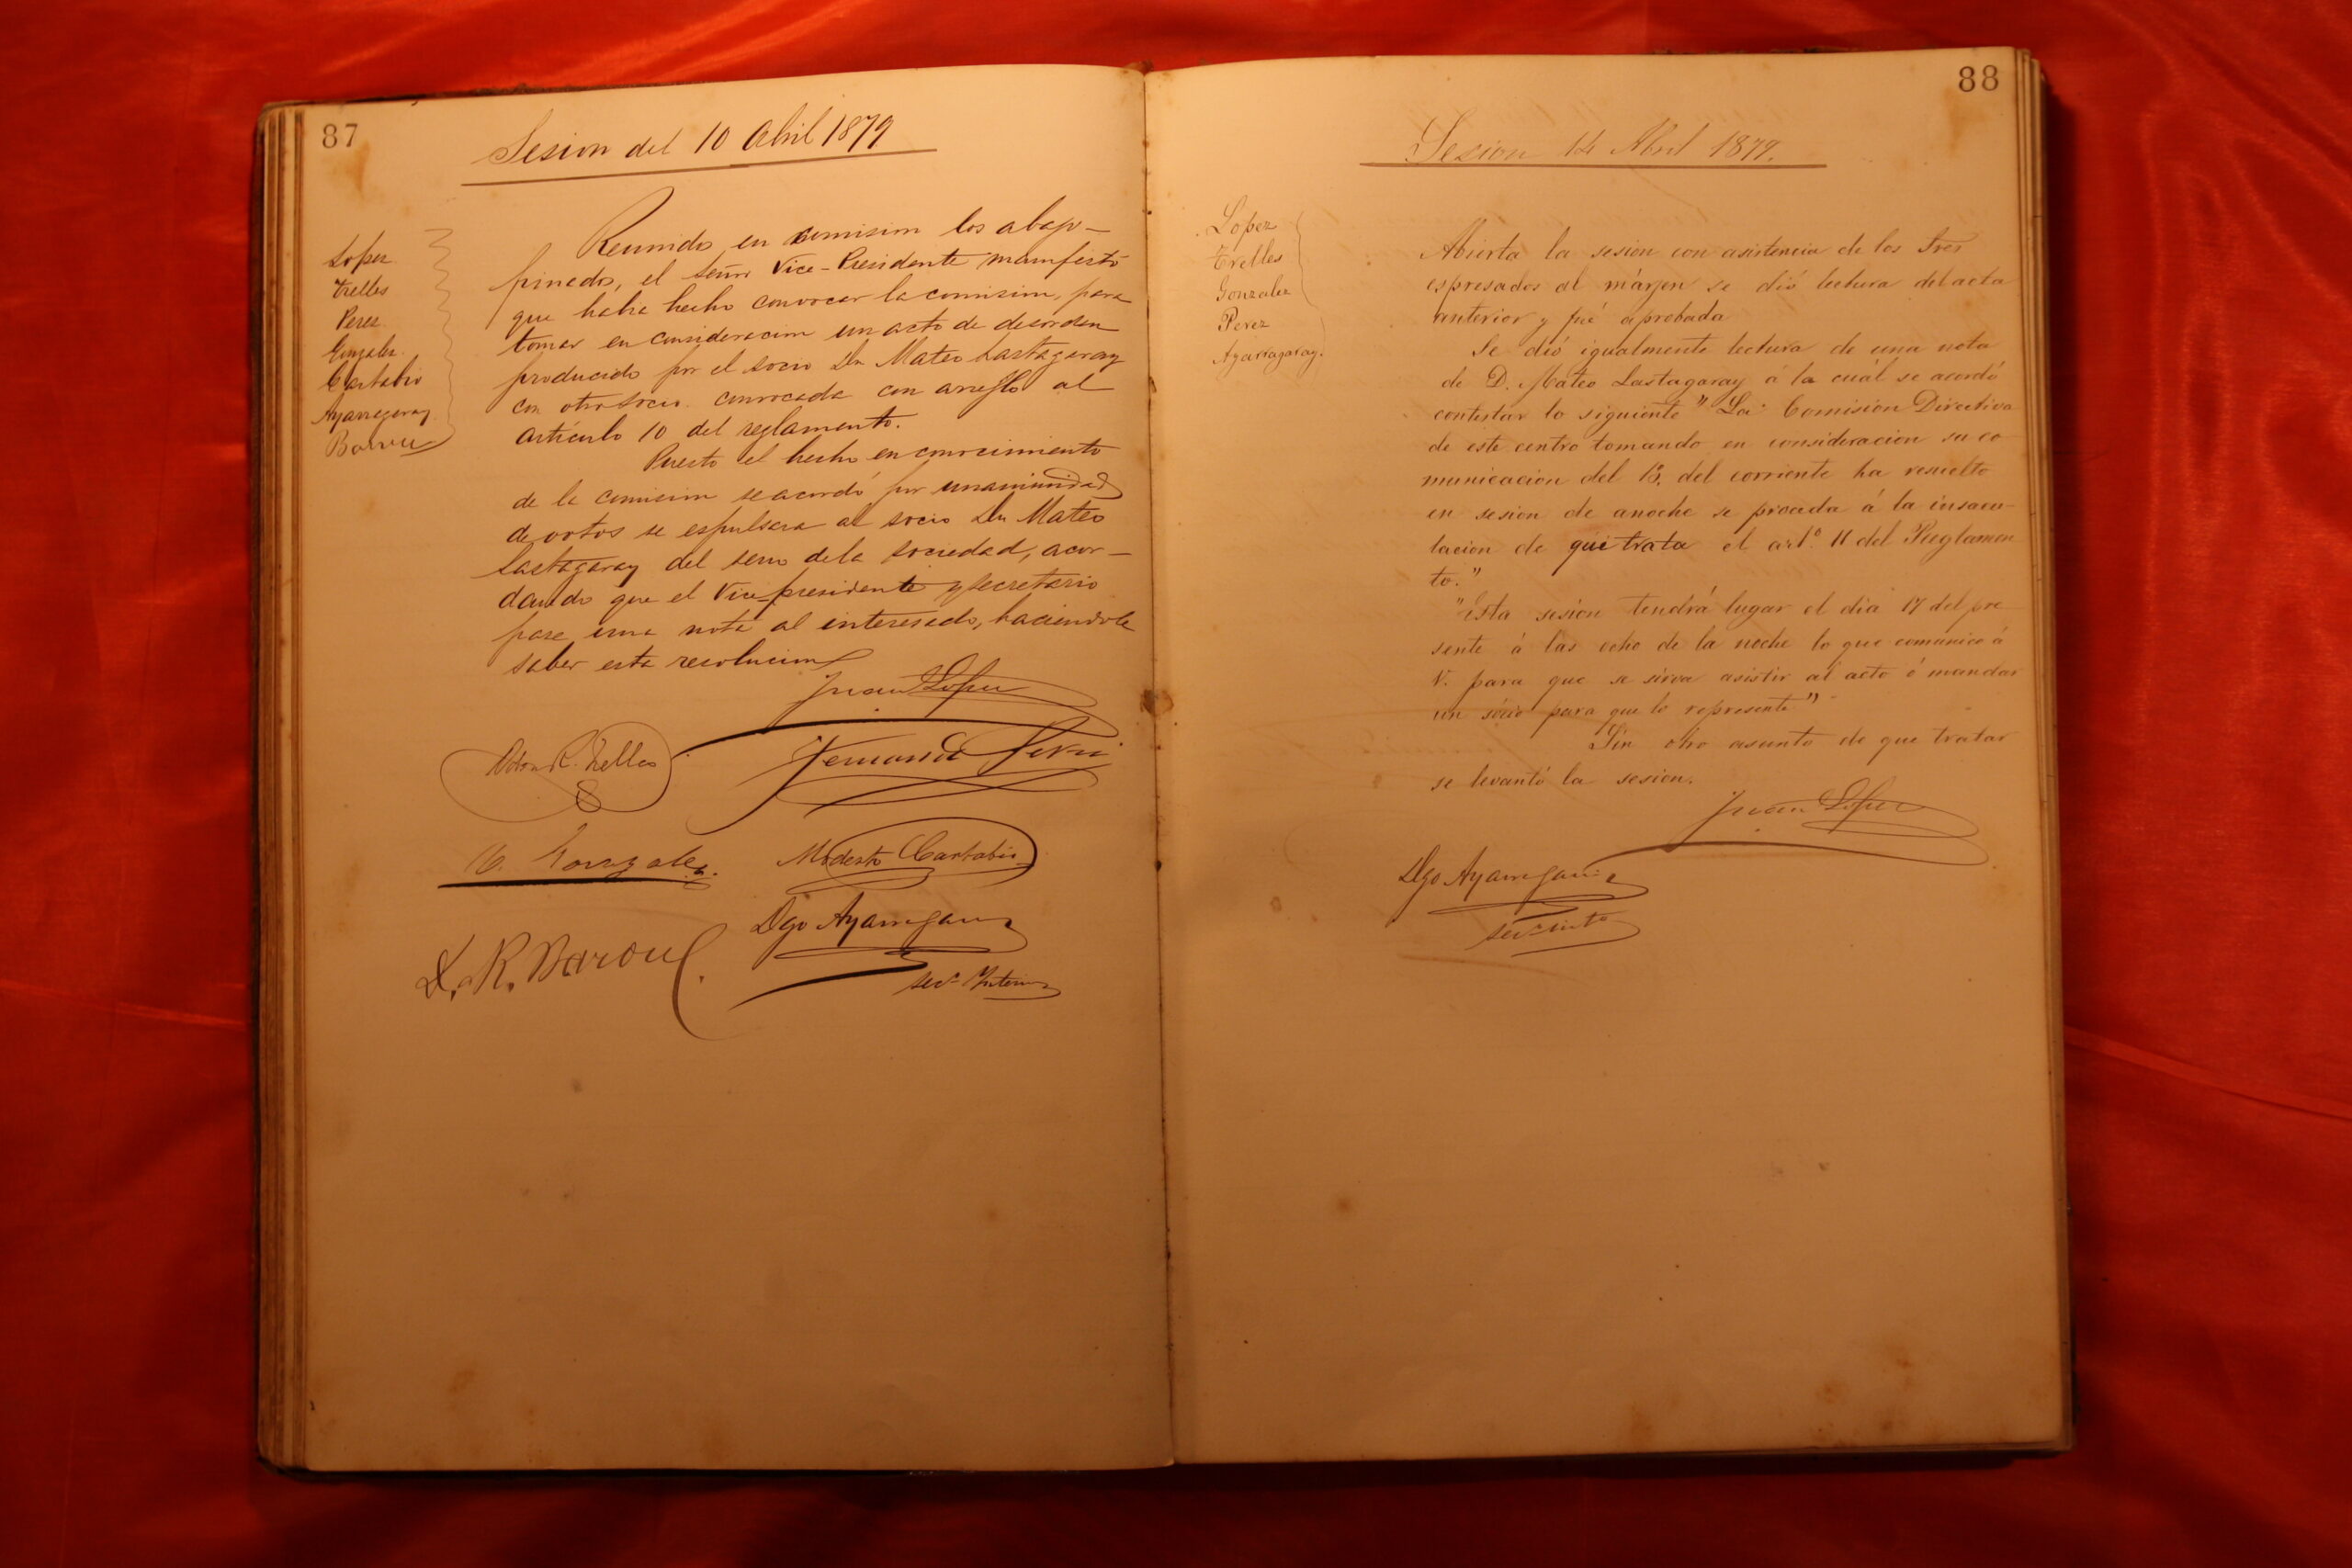 87
Sesion del 10 Abril 1879
Lopez
Trelles
Perez
Gonzalez
Cartabio
Ayarragaray
Barou
Reunidos en comision los abajo-
firmados, el señor Vice-Presidente manifestó
que habia hecho convocar la comision, para
tomar en consideracion un acto de desorden
producido por el socio Dn Mateo Lastagaray
con otro socio. convocada con arreglo al
artículo 10 del reglamento.
Puesto el hecho en conocimiento
de la comision se acordó por unanimidad
de votos se espulsara al socio Dn Mateo
Lastagaray del seno de la sociedad, acor-
dando que el Vice-presidente y secretario
pase una nota al interesado, haciendole
saber esta resolucion
Juan Lopez
R. Trelles
Fernando Perez
Gonzalez
Modesto Cartabio
Dgo Ayarragaray
R. Barou
Secº Interino
88
Sesion 14 Abril 1879.
Lopez
Trelles
Gonzalez
Perez
Ayarragaray.
Abierta la sesion con asistencia de los Sres
espresados al márjen se dió lectura del acta
anterior y fué aprobada
Se dió igualmente lectura de una nota
de D. Mateo Lastagaray á la cuál se acordó
contestar lo siguiente "La Comision Directiva
de este centro tomando en consideracion su co
municacion del 13. del corriente ha resuelto
en sesion de anoche se proceda á la insacu-
lacion de que trata el artº 11 del Reglamen
to."
"Esta sesion tendrá lugar el dia 17 del pre
sente á las ocho de la noche lo que comunico á
V. para que se sirva asistir al acto ó mandar
un sócio para que lo represente"
Sin otro asunto de que tratar
se levantó la sesion.
Juan Lopez
Dgo Ayarragaray